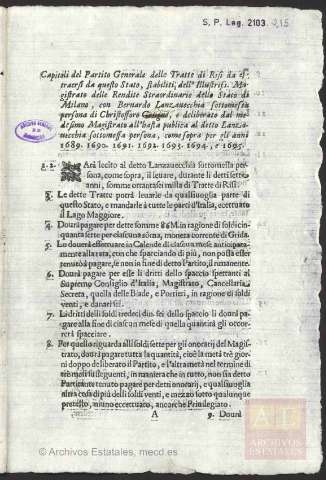 S. P. Leg. 2103 215
Capitoli del Partito Generale delle Tratte di Risi da es-
traersi da questo Stato, stabiliti, dell' Illustriss. Ma-
gistrato delle Rendite Straordinarie dello Stato di
Milano, con Bernardo Lanzauecchia sottomessa
persona di Christofforo, e deliberato dal me-
desimo Magistrato all'hasta publica al detto Lanza-
uecchia sottomessa persona, come sopra per gli anni
1689. 1690. 1691. 1692. 1693. 1694. e 1695.
1. 2. SArà lecito al detto Lanzauecchia sottomessa per-
sona, come sopra, il leuare, durante li detti sette
anni, somme ottantasei milla di Tratte di Risi.
3. Le dette Tratte potrà leuarle da qualsiuoglia parte di
questo Stato, e mandarle à tutte le parti d'Italia, eccettuato
il Lago Maggiore.
4. Dourà pagare per dette somme 86M. in ragione di soldi cin-
quanta sette per ciascuna sōma, moneta corrente di Grida.
5. Lo dourà essettuare in Calende di ciascun mese anticipata-
mente alla rata, con che spacciando di più, non possa esser
tenuto à pagare, se non in fine di detto Partito, il rimanente.
6. Dourà pagare per esse li dritti dello spaccio spettanti al
Supremo Consiglio d'Italia, Magistrato, Cancellaria
Secreta, quella delle Biade, e Portieri, in ragione di soldi
venti, e danari sei.
7. Li dritti delli soldi tredeci din. sei dello spaccio li dourà pa-
gare alla fine di ciascun mese di quella quantità gli occor-
rerà spacciare.
8. Per quello riguarda alli soldi sette per gli onorarij del Magis-
trato, dourà pagare tutta la quantità, cioè la metà trè gior-
ni doppo deliberato il Partito, e l'altra metà nel termine di
trè mesi susseguenti, in maniera che in tutto, non sia detto
Partitante tenuto pagare per detti onorarij, e qualsiuoglia
altra cosa di più delli soldi venti, e mezzo sotto qualunque
pretesto, niuno eccettuato, ancorche Priuilegiato.
A 9. Dourà
ARCHIVOS
ESTATALES
© Archivos Estatales, mecd.es